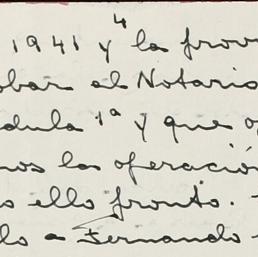 1941 y 4 la prov
obar al Notario
dula 1ª y que o
nos la operación
o ello pronto.
lo a Fernando